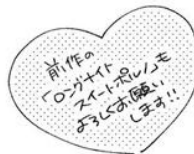 前作の
「ロングナイト
スイートポルノ」も
よろしくお願い
します!!